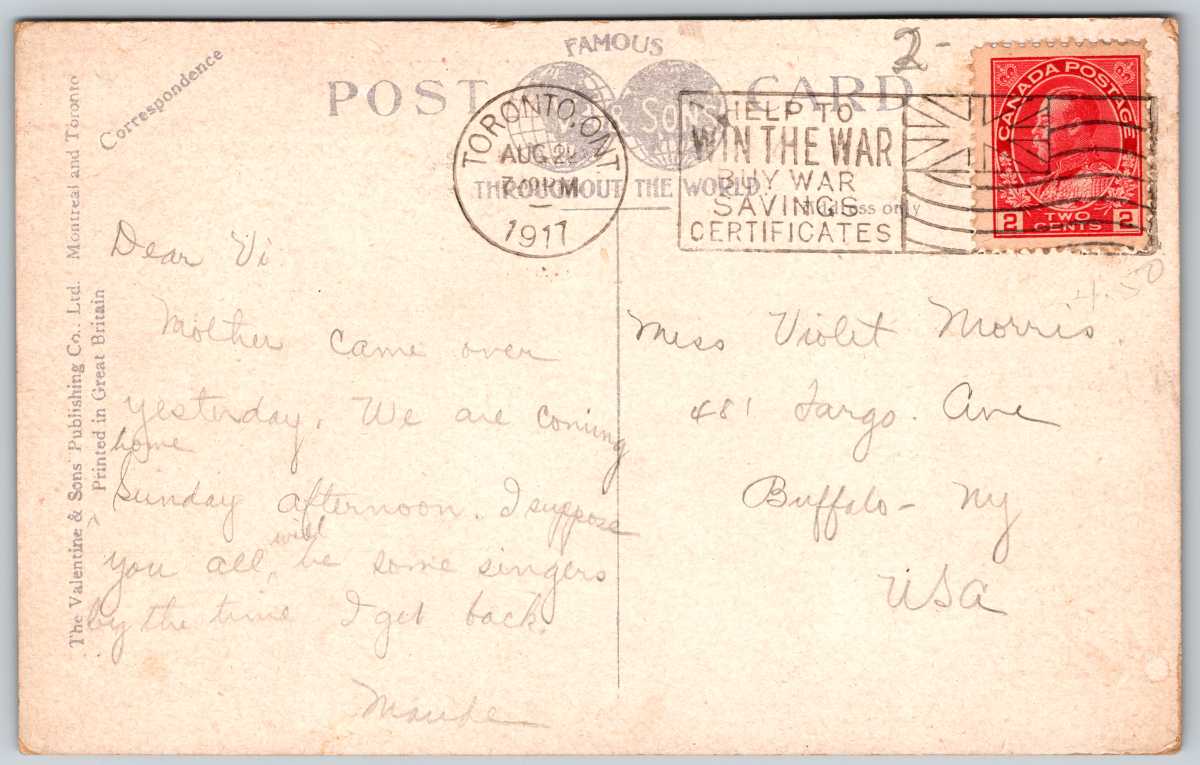 Correspondence
FAMOUS
POST CARD
& SONS
THROUGHOUT THE WORLD
Address only
TORONTO, ONT
AUG
1917
HELP TO
WIN THE WAR
BUY WAR
SAVINGS
CERTIFICATES
2-
CANADA POSTAGE
2 TWO CENTS 2
4.50
The Valentine & Sons' Publishing Co., Ltd. Montreal and Toronto
Printed in Great Britain
Dear Vi.
Mother came over
yesterday. We are coming
home
Sunday afternoon. I suppose
you all will be some singers
by the time I get back.
Miss Violet Morris.
481 Fargo. Ave
Buffalo - Ny
USA